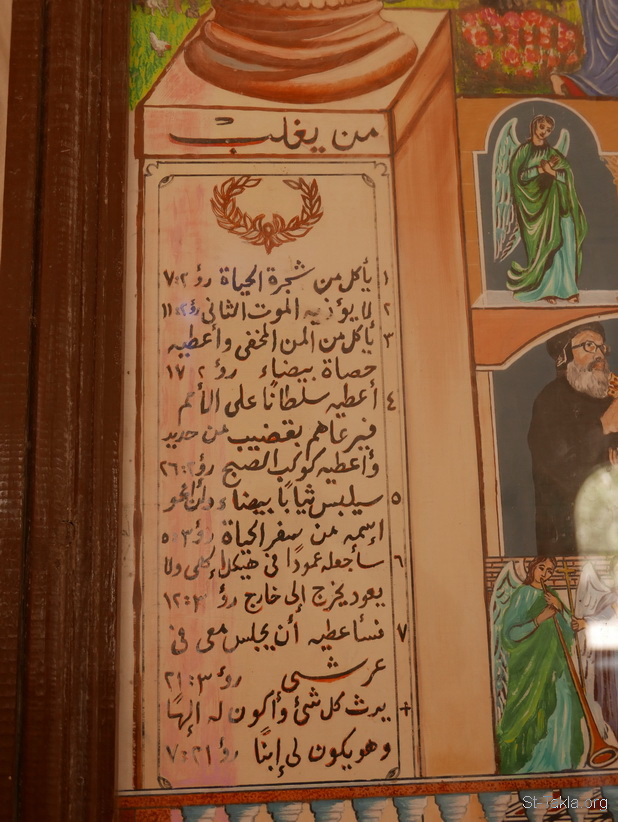 من يغلب
١ يأكل من شجرة الحياة رؤ ٧:٢
٢ لا يؤذيه الموت الثانى رؤ ١١:٢
٣ يأكل من المن المخفى وأعطيه
حصاة بيضاء رؤ ٢ ١٧
٤ أعطيه سلطانًا على الأمم
فيرعاهم بقضيب من حديد
وأعطيه كوكب الصبح رؤ ٢٦:٢
٥ سيلبس ثيابًا بيضاء ولن أمحو
إسمه من سفر الحياة رؤ ٥:٣
٦ سأجعله عمودًا فى هيكل إلهى ولا
يعود يخرج إلى خارج رؤ ١٢:٣
٧ فسأعطيه أن يجلس معى فى
عرشى رؤ ٢١:٣
+ يرث كل شئ وأكون له إلهًا
وهو يكون لى إبنًا رؤ ٧:٢١
St-Takla.org